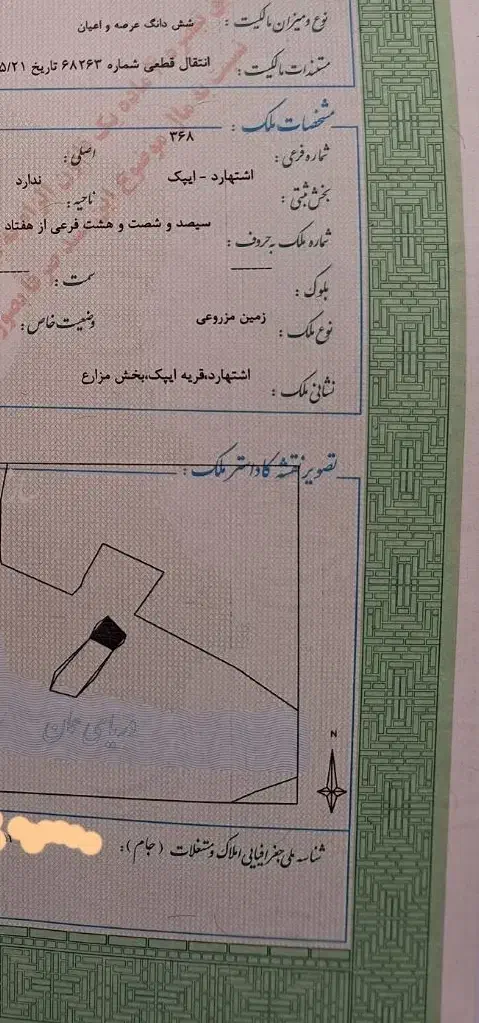 نوع و میزان مالکیت : شش دانگ عرصه و اعیان
مستندات مالکیت : انتقال قطعی شماره ۶۸۲۶۳ تاریخ ۵/۲۱
مشخصات ملک :
شماره فرعی : ۳۶۸ اصلی :
بخش ثبتی : اشتهارد - ایپک ناحیه : ندارد
شماره ملک به حروف : سیصد و شصت و هشت فرعی از هفتاد
بلوک : سمت :
نوع ملک : زمین مزروعی وضعیت خاص :
نشانی ملک : اشتهارد،قریه ایپک،بخش مزارع
تصویر نقشه کاداستر ملک :
N
دریای عمان
شناسه ملی جغرافیایی املاک و مستغلات (جام) :